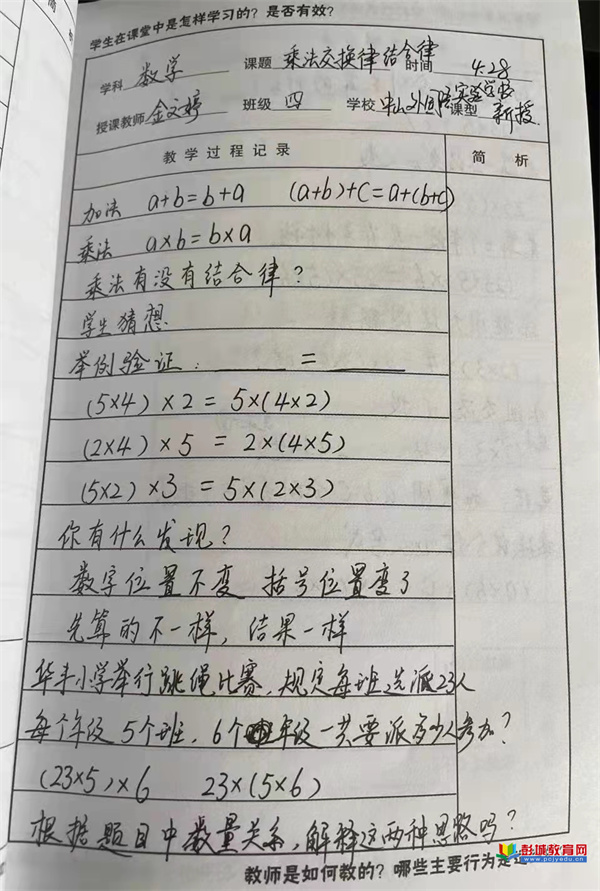 学生在课堂中是怎样学习的？是否有效？
学科 数学 课题 乘法交换律结合律 时间 4.28
授课教师 金文婷 班级 四 学校 中山外国语实验学校 课型 新授
教学过程记录 简析
加法 a+b=b+a (a+b)+c=a+(b+c)
乘法 a×b=b×a
乘法有没有结合律？
学生猜想
举例验证：______=______
(5×4)×2=5×(4×2)
(2×4)×5=2×(4×5)
(5×2)×3=5×(2×3)
你有什么发现？
数字位置不变 括号位置变了
先算的不一样，结果一样
华丰小学举行跳绳比赛，规定每班选派23人
每个年级5个班，6个年级一共要派多少人参加？
(23×5)×6 23×(5×6)
根据题目中数量关系，解释这两种思路吗？
教师是如何教的？哪些主要行为是
彭城教育网
www.pcjyedu.cn